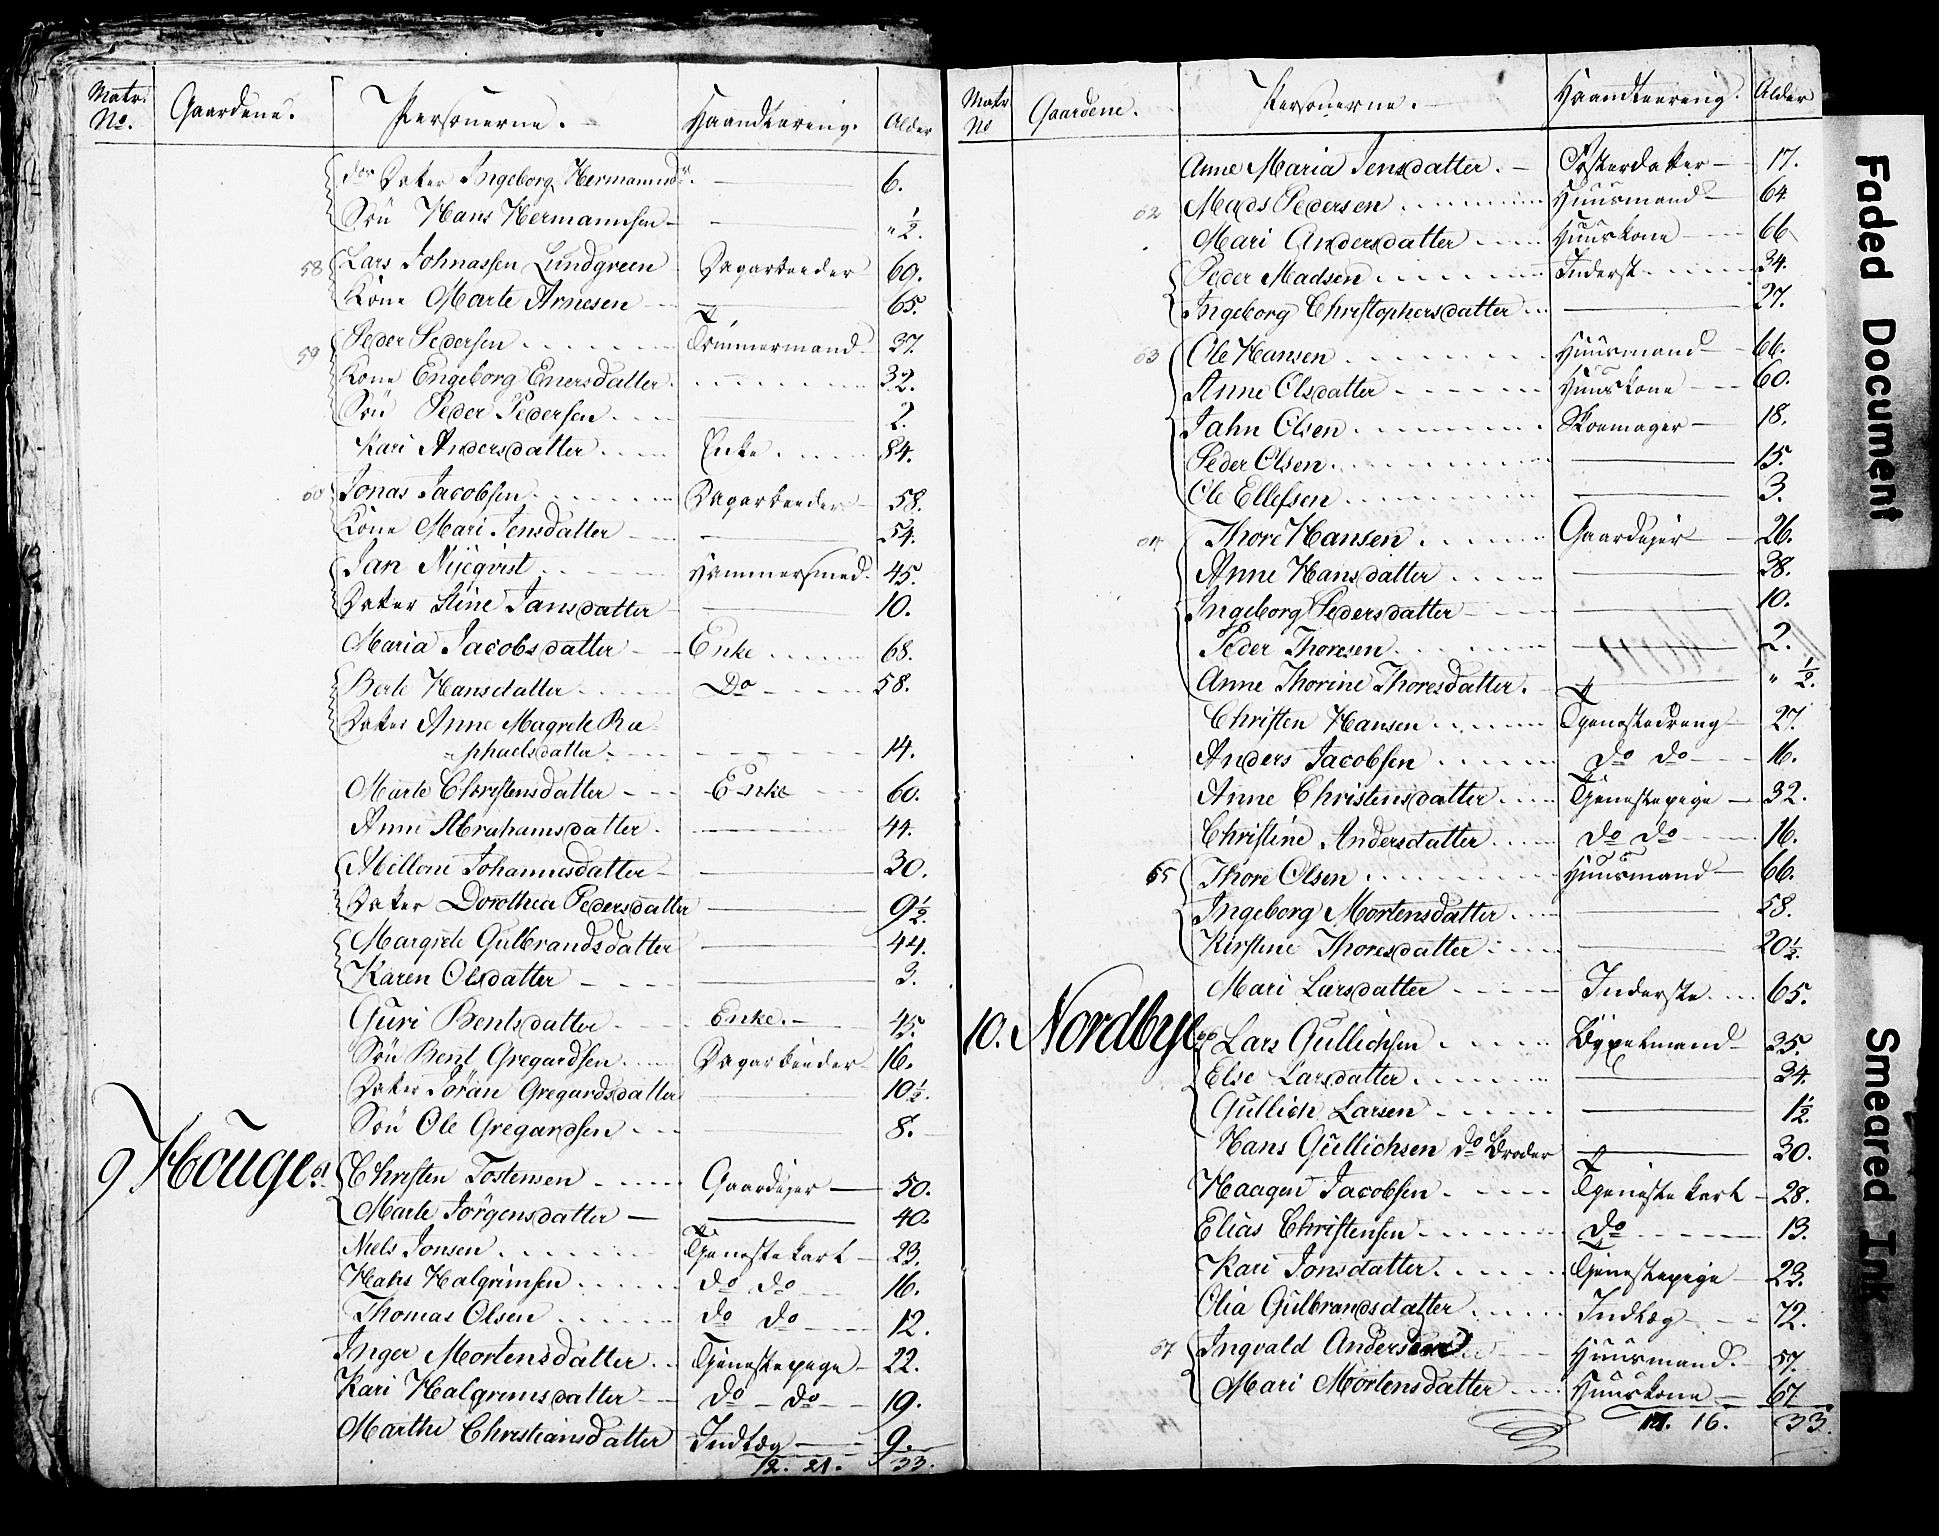 Matr: No. Gaardene. Personerne. Haandtering. Alder
dos Datter Ingeborg Hermannsdr. 6.
Søn Hans Hermannsen " 1/2.
58 Lars Johnassen Lundgreen Dagarbeider 60.
Kone Marte Arnesen 65.
59 Peder Pedersen Tømmermand 37.
Kone Engeborg Enersdatter 32.
Søn Peder Pedersen 2.
Kari Andersdatter Enke 84.
60 Jonas Jacobsen Dagarbeider 58.
Kone Mari Jensdatter 54.
Jan Nyeqvist Hammersmed 45.
Datter Stine Jansdatter 10.
Maria Jacobsdatter Enke 68.
Berte Hansdatter Do 58.
Datter Anne Magrete Ra-
phaelsdatter 14.
Marte Christensdatter Enke 60.
Anne Abrahamsdatter 44.
Millone Johannesdatter 30.
Datter Dorothea Pedersdatter 9 1/2.
Margrete Gulbrandsdatter 44.
Karen Olsdatter 3.
Guri Bentsdatter Enke. 45.
Søn Bent Gregardsen Dagarbeider 16.
Datter Jöran Gregardsdatter 10 1/2.
Søn Ole Gregardsen 8.
9 Houge 61 Christen Tostensen Gaardejer 50.
Marte Jörgensdatter 40.
Niels Jonsen Tjenestekarl 23.
Hans Halgrimsen do do 16.
Thomas Olsen do do 12.
Inger Mortensdatter Tjenestepige 22.
Kari Halgrimsdatter do do 19.
Marthe Christiansdatter Indlæg 9.
12. 21. 33.
Matr No Gaardene. Personerne. Haandteering. Alder
Anne Maria Jensdatter Fosterdatter 17.
62 Mads Pedersen Huusmand 64
Mari Andersdatter Huuskone 66
Peder Madsen Inderst 34.
Ingeborg Christophersdatter 27.
63 Ole Hansen Huusmand 66.
Anne Olsdatter Huuskone 60.
Jahn Olsen Skoemager 18.
Peder Olsen 15.
Ole Ellefsen 3.
64 Thore Hansen Gaardejer 26.
Anne Hansdatter 38.
Ingeborg Pedersdatter 10.
Peder Thoresen 2.
Anne Thorine Thoresdatter. " 1/2.
Christen Hansen Tjenestedreng 27.
Anders Jacobsen do do 16.
Anne Christensdatter Tjenestepige 32.
Christine Andersdatter do do 16.
65 Thore Olsen Huusmand 66.
Ingeborg Mortensdatter 58.
Kirstine Thoresdatter 20 1/2.
Mari Larsdatter Inderste 65.
10. Nordbye 66 Lars Gullichsen Bygselmand 35.
Else Larsdatter 34.
Gullich Larsen 1 1/2.
Hans Gullichsen do Broder 30.
Haagen Jacobsen Tjenestekarl 28.
Elias Christensen do 13.
Kari Jonsdatter Tjenestepige 23.
Olia Gulbrandsdatter Indlæg 72.
67 Ingvald Andersen Huusmand. 57.
Mari Mortensdatter Huuskone 67.
17. 16. 33.
Faded Document
Smeared Ink